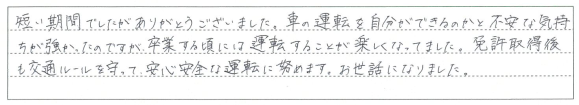 短い期間でしたがありがとうございました。車の運転を自分ができるのかと不安な気持
ちが強かったのですが、卒業する頃には運転することが楽しくなってました。免許取得後
も交通ルールを守って、安心安全な運転に努めます。お世話になりました。